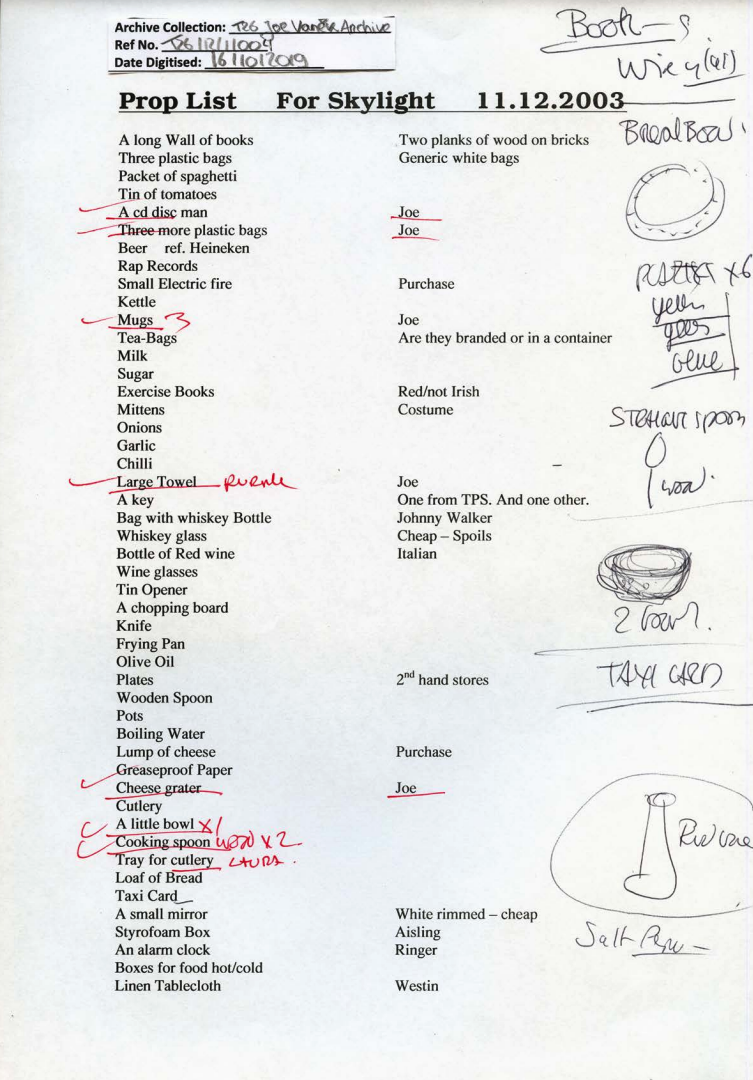 Archive Collection: T26 Joe Vaněk Archive
Ref No. T26/2/11004
Date Digitised: 16/10/2019
Book
Prop List For Skylight 11.12.2003
Bread Bowl
A long Wall of books Two planks of wood on bricks
Three plastic bags Generic white bags
Packet of spaghetti
Tin of tomatoes
A cd disc man Joe
Three more plastic bags Joe
Beer ref. Heineken
Rap Records
x6
Small Electric fire Purchase
Kettle
Mugs 3 Joe
Tea-Bags Are they branded or in a container
Milk
blue
Sugar
Exercise Books Red/not Irish
Mittens Costume
spoon
Onions
Garlic
Chilli
Large Towel purple Joe
A key One from TPS. And one other.
Bag with whiskey Bottle Johnny Walker
Whiskey glass Cheap – Spoils
Bottle of Red wine Italian
Wine glasses
Tin Opener
A chopping board
2 bowl.
Knife
Frying Pan
Olive Oil
Plates 2nd hand stores
TAXI CARD
Wooden Spoon
Pots
Boiling Water
Lump of cheese Purchase
Greaseproof Paper
Cheese grater Joe
Cutlery
A little bowl x1
Cooking spoon wood x2
Tray for cutlery LAURA.
Loaf of Bread
Taxi Card
A small mirror White rimmed – cheap
Styrofoam Box Aisling
Salt
An alarm clock Ringer
Boxes for food hot/cold
Linen Tablecloth Westin